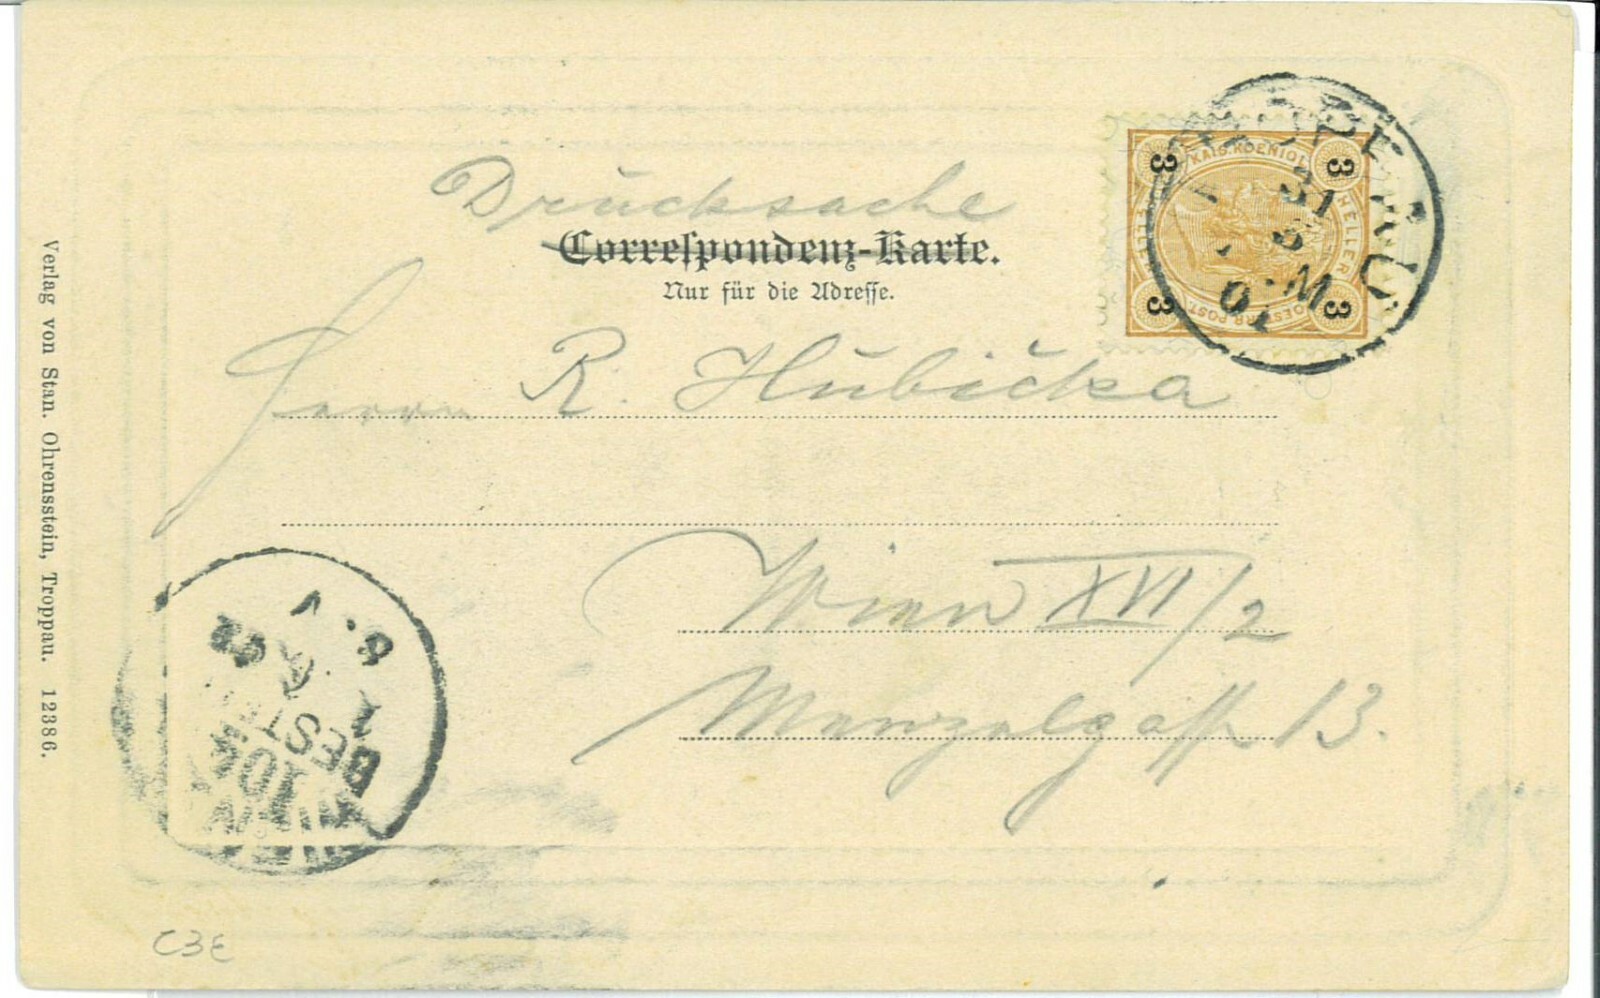 Drucksache
Correspondenz-Karte.
Nur für die Adresse.
Herrn R. Hubička
Wien XVI/2
Manzalgasse 13.
Verlag von Stan. Ohrensstein, Troppau. 12386.
3 3
KAIS. KOENIGL.
HELLER
OESTERR. POST.
3 3
31 5
01
WIEN
104
BEST
8. V
C3E